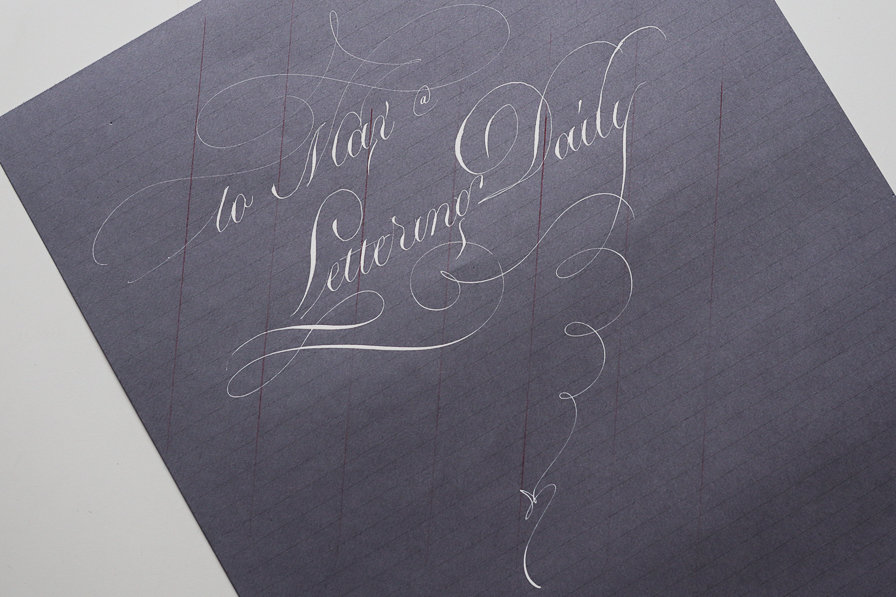 to Max @
Lettering Daily